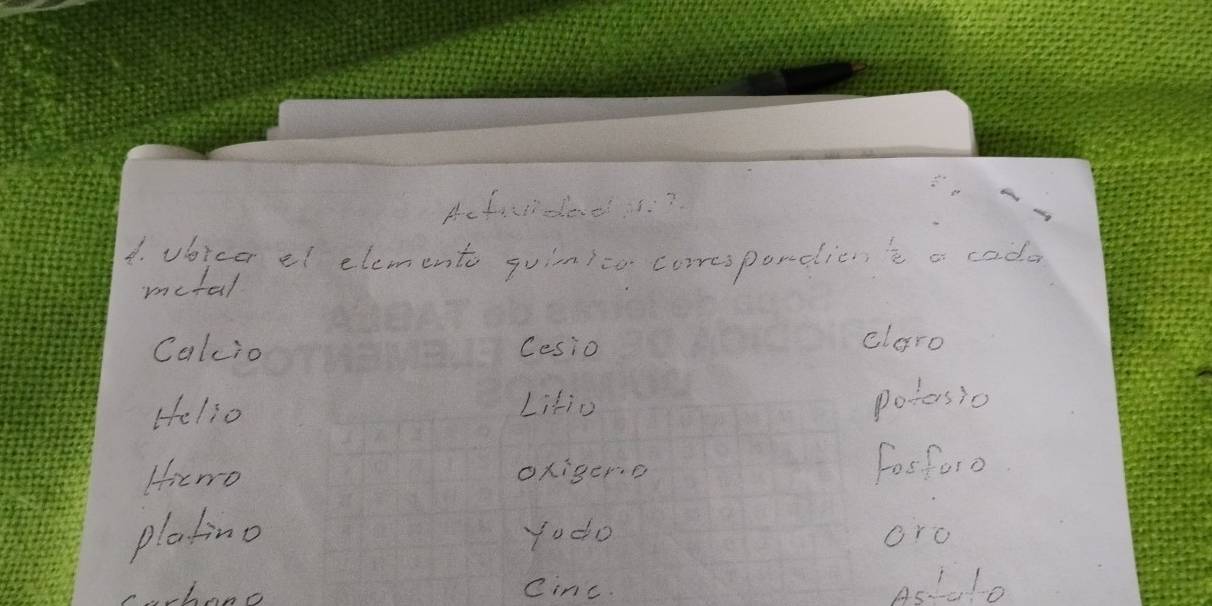 Actividad
1. Ubica el elemento químico correspondiente a cada
metal
Calcio Cesio Cloro
Helio Litio potasio
Hierro oxigeno Fosforo
platino Yodo oro
carbono Cinc. Astato